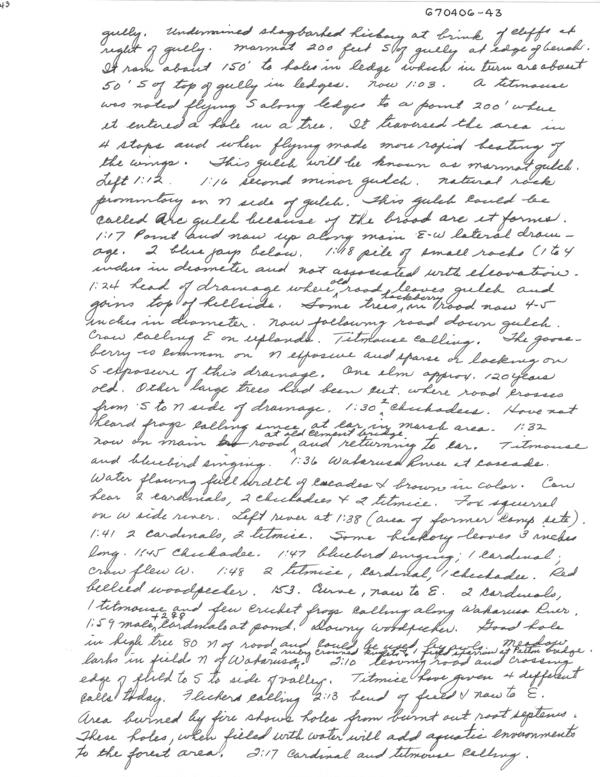 43
G70406-43
gully. Undermined shagbarked hickory at brink of cliffs at
right of gully. Marmat 200 feet S of gully at edge of bench.
It ran about 150' to holes in ledge which in turn are about
50' S of top of gully in ledges. now 1:03. A titmouse
was noted flying S along ledges to a point 200' where
it entered a hole in a tree. It traversed the area in
4 stops and when flying made more rapid beating of
the wings. This gulch will be known as marmat gulch.
Left 1:12. 1:16 second minor gulch. natural rock
promontory on N side of gulch. This gulch could be
called Arc gulch because of the broad arc it forms.
1:17 Point and now up along main E-W lateral drain-
age. 2 blue jays below. 1:18 pile of small rocks (1 to 4
inches in diameter and not associated with excavation.
1:24 head of drainage where old road leaves gulch and
goins top of hillside. Some trees, hackberry in road now 4-5
inches in diameter. now following road down gulch.
Crow calling E on uplands. Titmouse calling. The goose-
berry is common on N exposure and sparse or lacking on
S exposure of this drainage. One elm approx. 120 years
old. Other large trees had been cut. where road crosses
from S to N side of drainage. 1:30 2 chickadees. Have not
heard frogs calling since at car in marsh area. 1:32
now on main road at old cement bridge and returning to car. Titmouse
and bluebird singing. 1:36 Wakarusa River at cascade.
Water flowing full width of cascades & brown in color. Can
hear 2 cardinals, 2 chickadees & 2 titmice. Fox squirrel
on W side river. Left river at 1:38 (area of former camp site).
1:41 2 cardinals, 2 titmice. Some hickory leaves 3 inches
long. 1:45 Chickadee. 1:47 bluebird singing; 1 cardinal;
crow flew W. 1:48 2 titmice, cardinal, 1 chickadee. Red
bellied woodpecker. 153. Curve, now to E. 2 cardinals,
1 titmouse and few cricket frogs calling along Wakarusa River.
1:59 male, cardinals at pond. Downy woodpecker. Good hole
in high tree 80 N of road and could be used by Meadow
larks in field N of Wakarusa. 2 ruby crowned kinglets & 1 at bridge. 2:10 leaving road and crossing
edge of field to S to side of valley. Titmice have given 4 different
calls today. Flickers calling 2:13 bend of field & now to E.
Area burned by fire shows holes from burnt out root systems.
These holes, when filled with water will add aquatic environments
to the forest area. 2:17 Cardinal and titmouse calling.